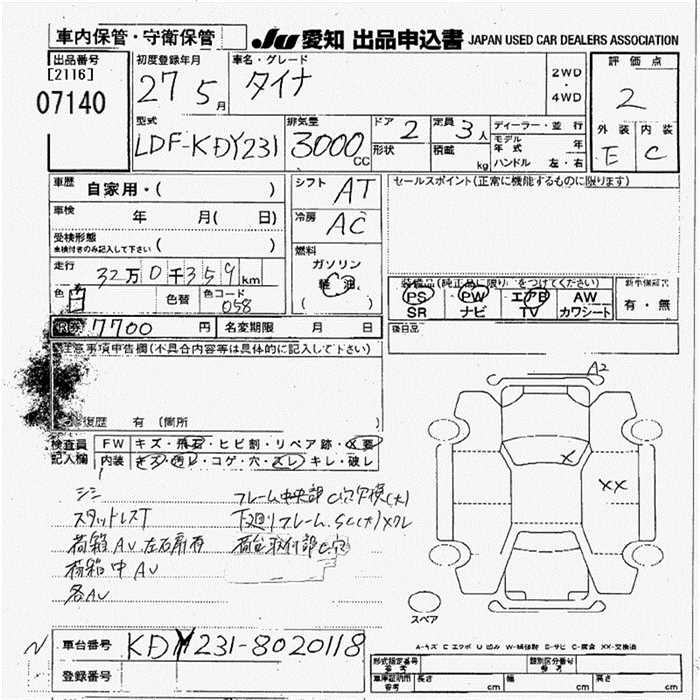 車内保管・守衛保管 JU 愛知 出品申込書 JAPAN USED CAR DEALERS ASSOCIATION
出品番号 初度登録年月 車名・グレード 評価点
[2116] 27 5月 ダイナ 2WD・4WD 2
07140
型式 排気量 ドア 2 定員 3人 ディーラー・並行 外装 内装
LDF-KDY231 3000CC 形状 積載 kg モデル年式 年 E C
ハンドル 左・右
車歴 自家用・( ) シフト AT セールスポイント(正常に機能するものに限ります)
車検 年 月( 日) 冷房 AC
受検形態 ( )
※検付きのみ記入して下さい 燃料
走行 32万0千359km ガソリン
軽油 装備品(純正品に限り○をつけてください) 新車保証書
色 白 色替 色コード 058 ( ) PS PW エアB AW 有・無
SR ナビ TV カワシート
7700円 名変期限 月 日 後日品
注意事項申告欄(不具合内容等は具体的に記入して下さい)
A2
修復歴 有 (箇所
検査員記入欄 FW キズ・飛石・ヒビ割・リペア跡・X要
内装 キズ・汚レ・コゲ・穴・スレ・キレ・破レ
X XX
フレーム中央部C穴欠損(大)
スタッドレスT 下廻リフレーム.SC(大)Xワレ
荷箱AU 左右扉有 荷台取付部C穴
荷箱中AU
各AU
スペア
車台番号 KDY231-8020118 A-キズ E エクボ U 凹み W-補修跡 S-サビ C-腐食 XX-交換済
登録番号 形式指定番号 参考 類別区分番号 参考
車庫証明用参考 長さ cm 幅 cm 高さ cm